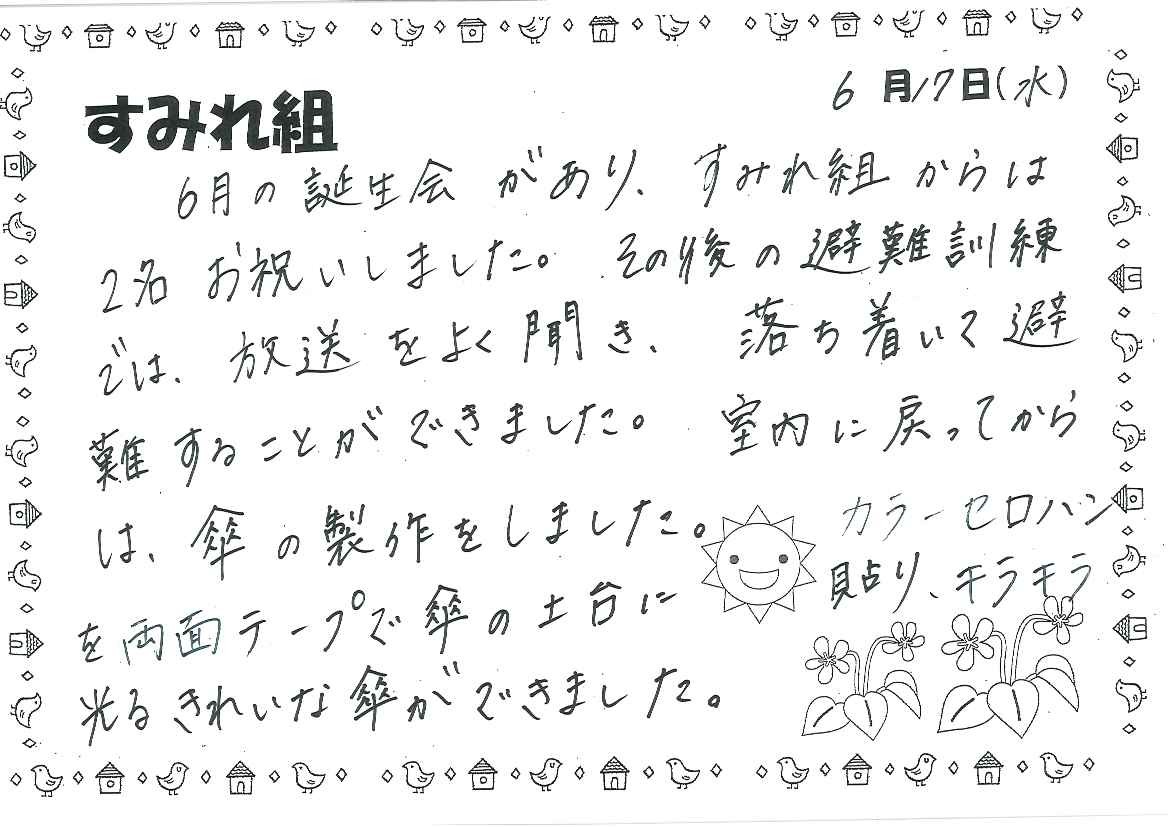 すみれ組
6月17日(水)
6月の誕生会があり、すみれ組からは
2名お祝いしました。その後の避難訓練
では、放送をよく聞き、落ち着いて避
難することができました。室内に戻ってから
は、傘の製作をしました。カラーセロハン
を両面テープで傘の土台に貼り、キラキラ
光るきれいな傘ができました。